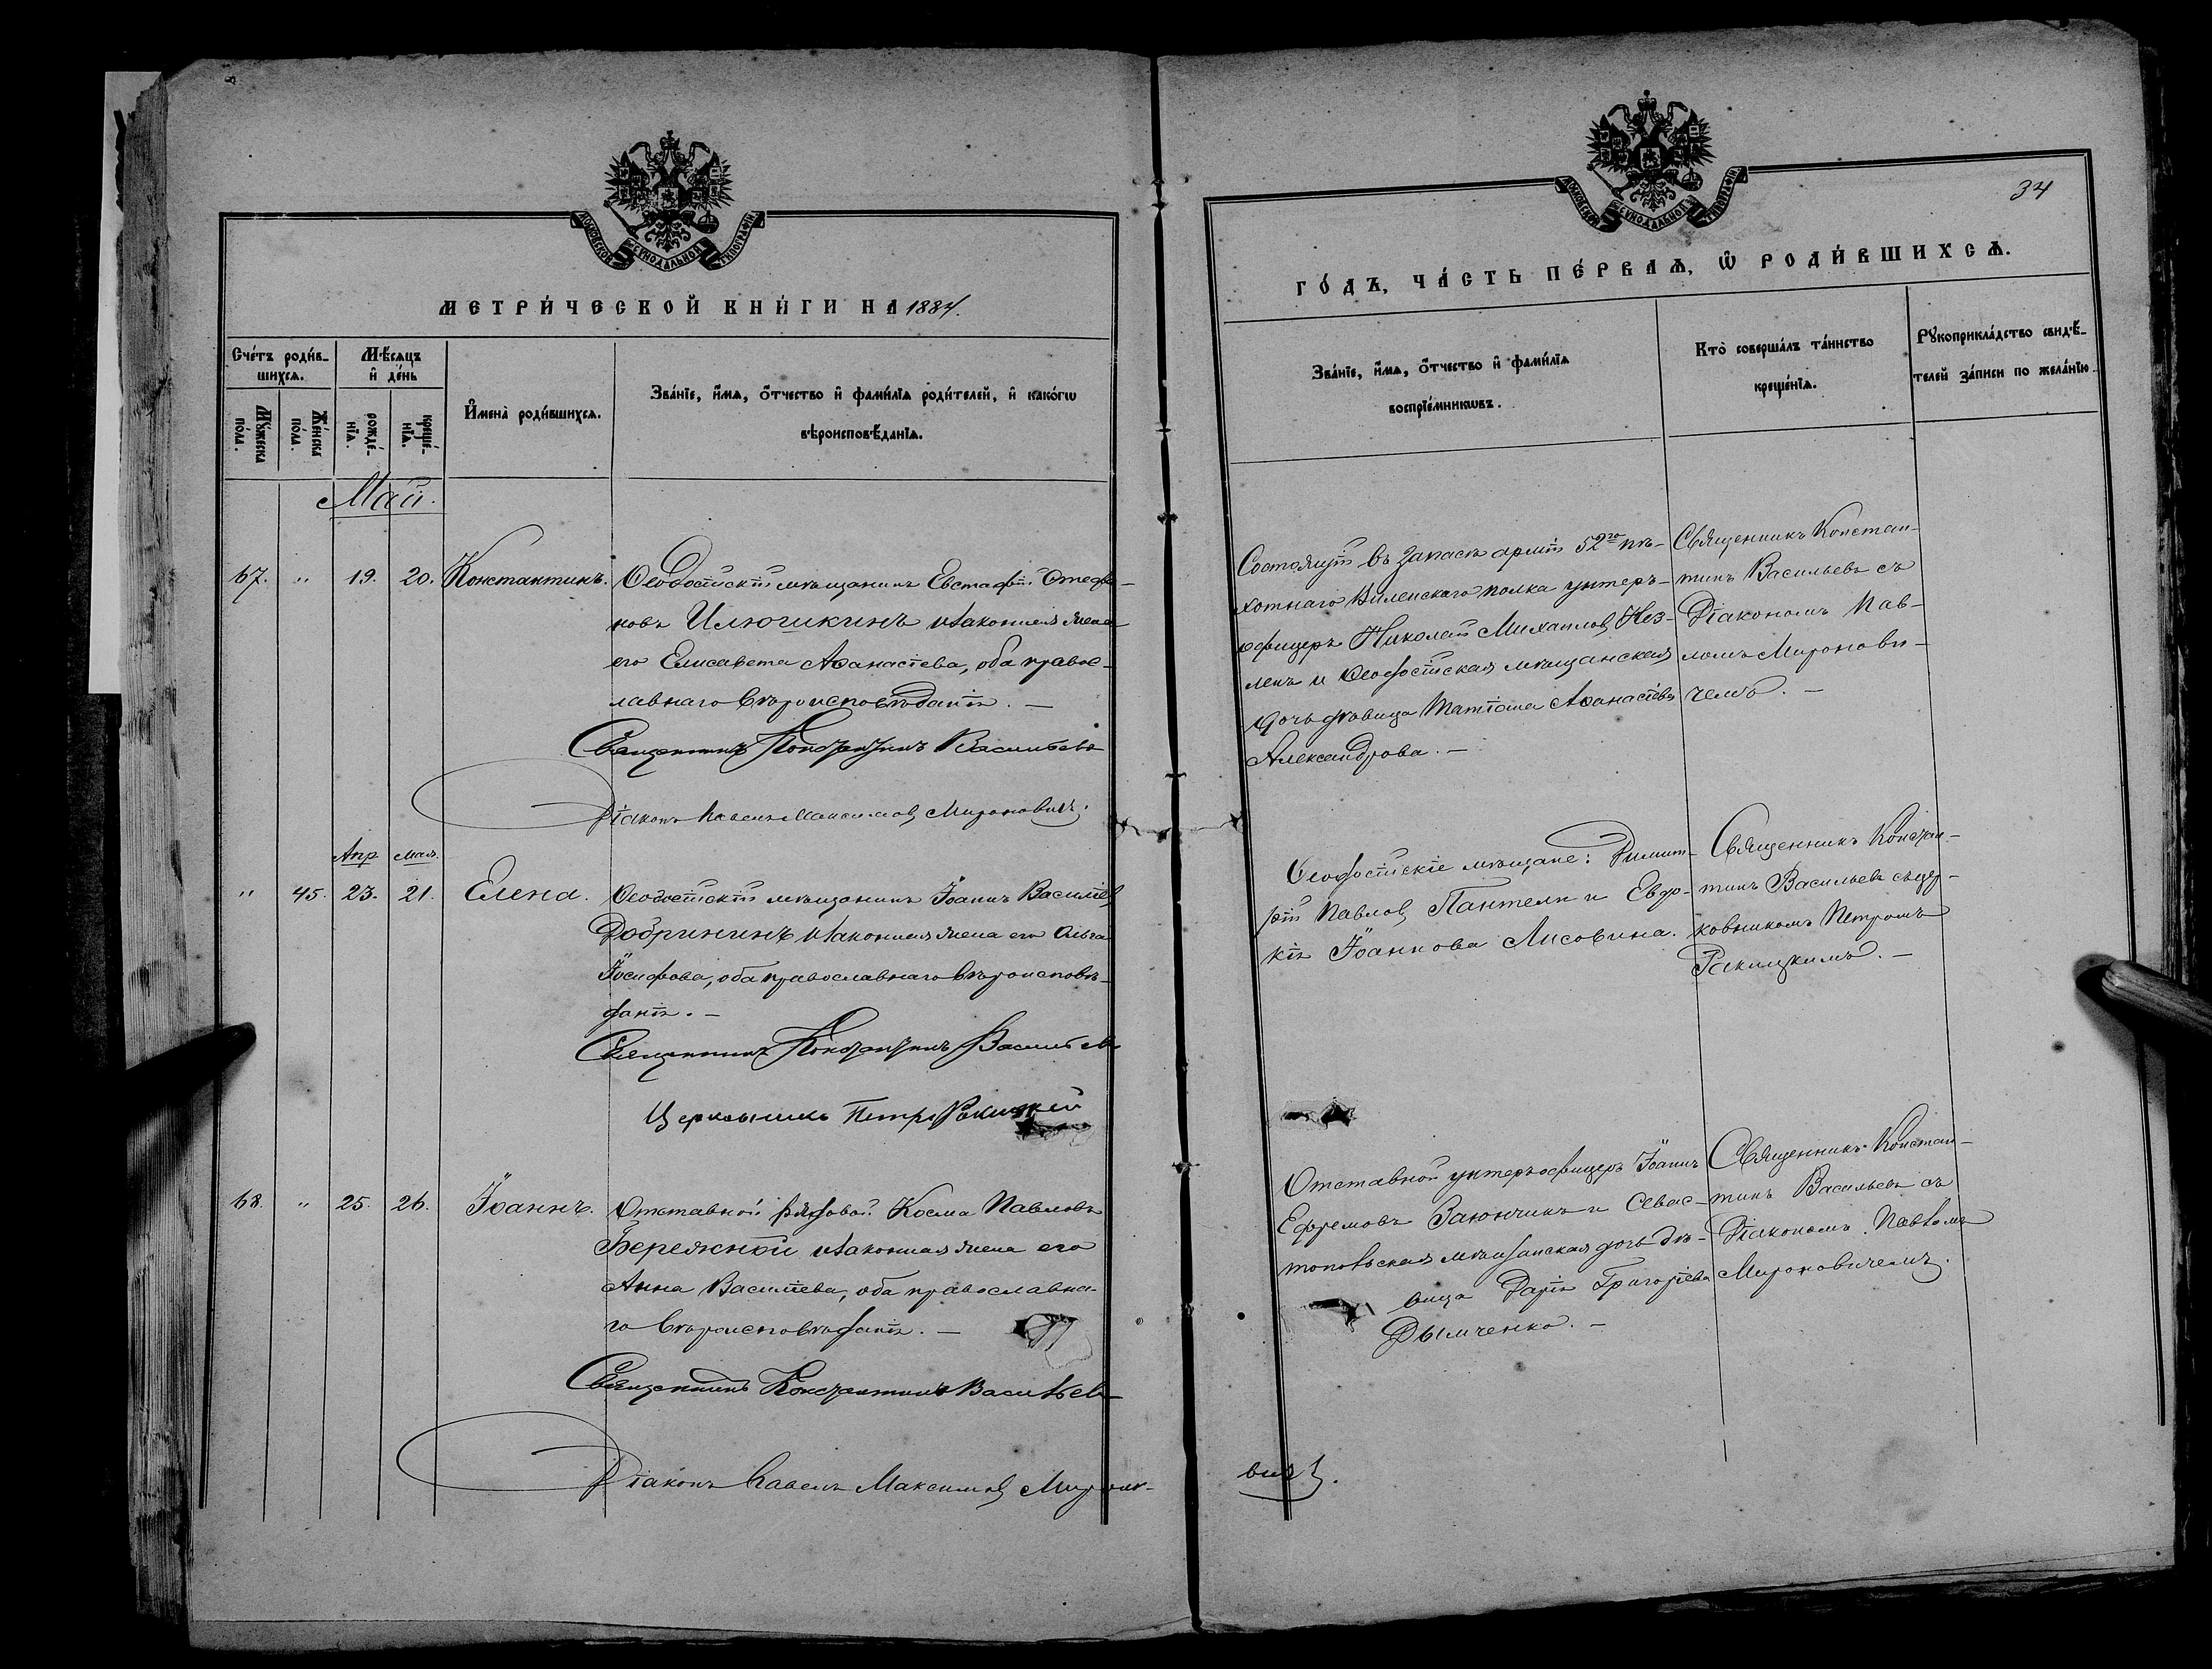 МОСКОВСКОЙ СѴНОДАЛЬНОЙ ТИПОГРАФІИ
МЕТРИ́ЧЕСКОЙ КНИ́ГИ НА 1884.
Сче́тъ роди́в-
шихсѧ.
Мѣ́сѧцъ
и҆ де́нь
Мꙋ́жеска
по́ла.
Же́нска
по́ла.
рожде́-
нїѧ.
креще́-
нїѧ.
И҆мена̀ роди́вшихсѧ.
Зва́нїе, и҆́мѧ, ѻ҆́тчество и҆ фами́лїѧ роди́телей, и҆ како́гѡ
вѣроисповѣ́данїѧ.
Май.
67. " 19. 20. Константинъ.
Ѳеодосійскій мѣщанинъ Евстафій Стефа-
новъ Илюшкинъ и законная жена
его Елисавета Аѳанасіева, оба правос-
лавнаго вѣроисповѣданія. —
Священникъ Константинъ Васильевъ
Діаконъ Павелъ Максимовъ Мироновичъ.
Апр. Мая.
" 45. 23. 21. Елена.
Ѳеодосійскій мѣщанинъ Іоаннъ Василіев
Добрининъ и законная жена его Ольга
Іосифова, оба православнаго вѣроисповѣ-
данія. —
Священникъ Константинъ Васильевъ
Церковникъ Петръ Ракицкій
68. " 25. 26. Іоаннъ.
Отставной рядовой Косма Павловъ
Бережной и законная жена его
Анна Василіева, оба православна-
го вѣроисповѣданія. —
Священникъ Константинъ Васильевъ
Діаконъ Павелъ Максимовъ Мироно-
МОСКОВСКОЙ СѴНОДАЛЬНОЙ ТИПОГРАФІИ
34
ГО́ДЪ, ЧА́СТЬ ПЕ́РВАѦ, Ѡ҆ РОДИ́ВШИХСѦ.
Зва́нїе, и҆́мѧ, ѻ҆́тчество и҆ фами́лїѧ
воспрїе́мникѡвъ.
Кто̀ соверша́лъ та́инство
креще́нїѧ.
Рꙋкоприкла́дство свидѣ́-
телей за́писи по жела́нїю.
Состоящій въ запасѣ арміи 52го пѣ-
хотнаго Виленскаго полка унтеръ-
офицеръ Николай Михаилов Нез-
ленъ и Ѳеодосійская мѣщанская
дочь дѣвица Татіана Аѳанасіева
Александрова. —
Священникъ Констан-
тинъ Васильевъ съ
Діакономъ Пав-
ломъ Миронови-
чемъ. —
Ѳеодосійскіе мѣщане: Димит-
рій Павлов Пантели и Евдо-
кія Іоаннова Лисовина.
Священникъ Констан-
тинъ Васильевъ съ цер-
ковникомъ Петромъ
Ракицкимъ. —
Отставной унтеръ-офицеръ Іоаннъ
Ефремовъ Заюнчикъ и Севас-
топольская мѣщанская дочь дѣ-
вица Дарія Григоріева
Дымченко. —
Священникъ Констан-
тинъ Васильевъ съ
Діакономъ Павломъ
Мироновичемъ.
вичъ.